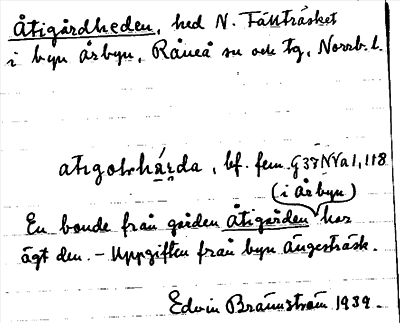 Åtigårdheden, hed N. Fällträsket
i byn Årbyn, Råneå sn och tg, Norrb. l.
atigolshärda, bf. fem. G37NVa1,118
(i Årbyn)
En bonde från gården Åtigården har
ägt den. – Uppgiften från byn Ängesträsk.
Edvin Brännström 1939.